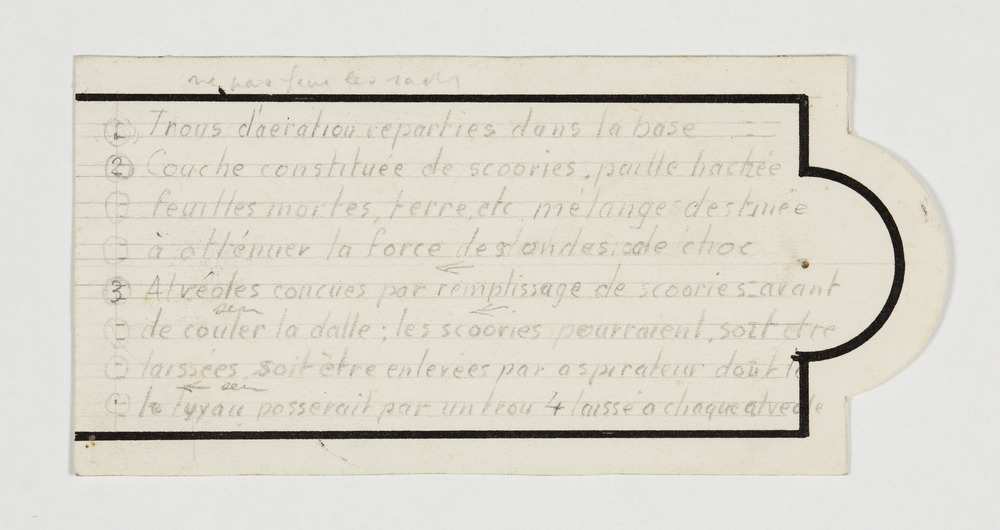 ne pas
1 Trous d'aération reparties dans la base
2 Couche constituée de scoories, paille hachée
feuilles mortes, terre, etc, mélange destinée
à atténuer la force des ondes de choc
3 Alvéoles concues par remplissage de scoories avant
de couler la dalle; les scoories pourraient, soit etre
laissées, soit être enlevées par aspirateur dont le
le tuyau passerait par un trou 4 laissé a chaque alvéole